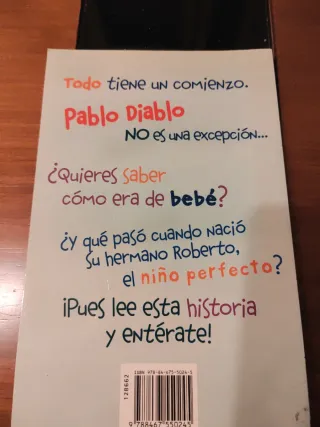 Todo tiene un comienzo.
Pablo Diablo
NO es una excepción...
¿Quieres saber
cómo era de bebé?
¿y qué pasó cuando nació
su hermano Roberto,
el niño perfecto?
¡Pues lee esta historia
y entérate!
ISBN 978-84-675-5024-5
128662
9 788467 550245